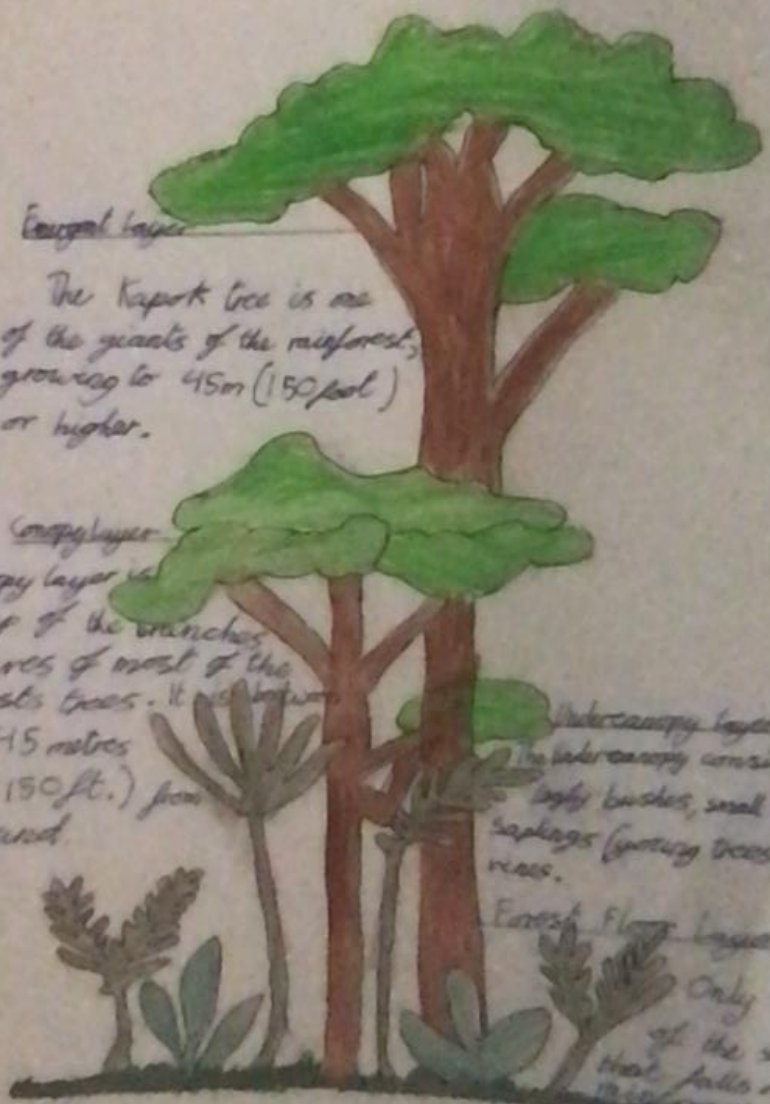 Emergent Layer
The Kapok tree is one
of the giants of the rainforest,
growing to 45m (150 feet)
or higher.
Canopy layer
opy layer is
of the branches
res of most of the
sts trees. It is between
45 metres
150ft.) from
und
Undercanopy layer
The undercanopy consi
bushes, small
saplings (young trees
vines.
Forest Floor Layer
Only
of the s
that falls